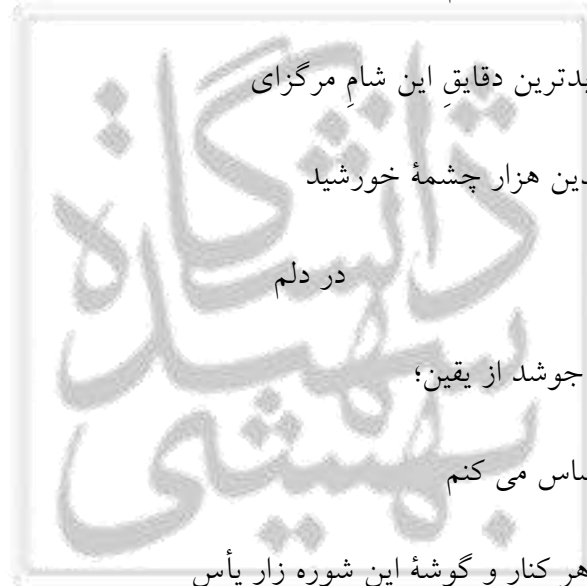 بدترین دقایقِ این شامِ مرگزای
دین هزار چشمهٔ خورشید
در دلم
جوشد از یقین؛
ساس می کنم
هر کنار و گوشهٔ این شوره زار یأس
دانشگاه شهید بهشتی